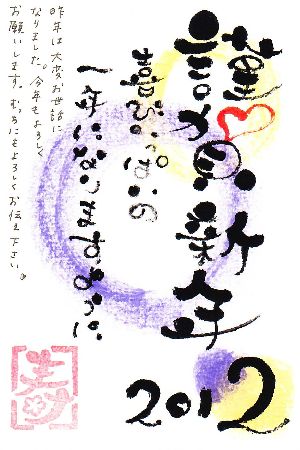 謹賀新年
喜びいっぱいの
一年になりますように
2012
昨年は大変お世話に
なりました。今年もよろしく
お願いします。むっちにもよろしくお伝え下さい。